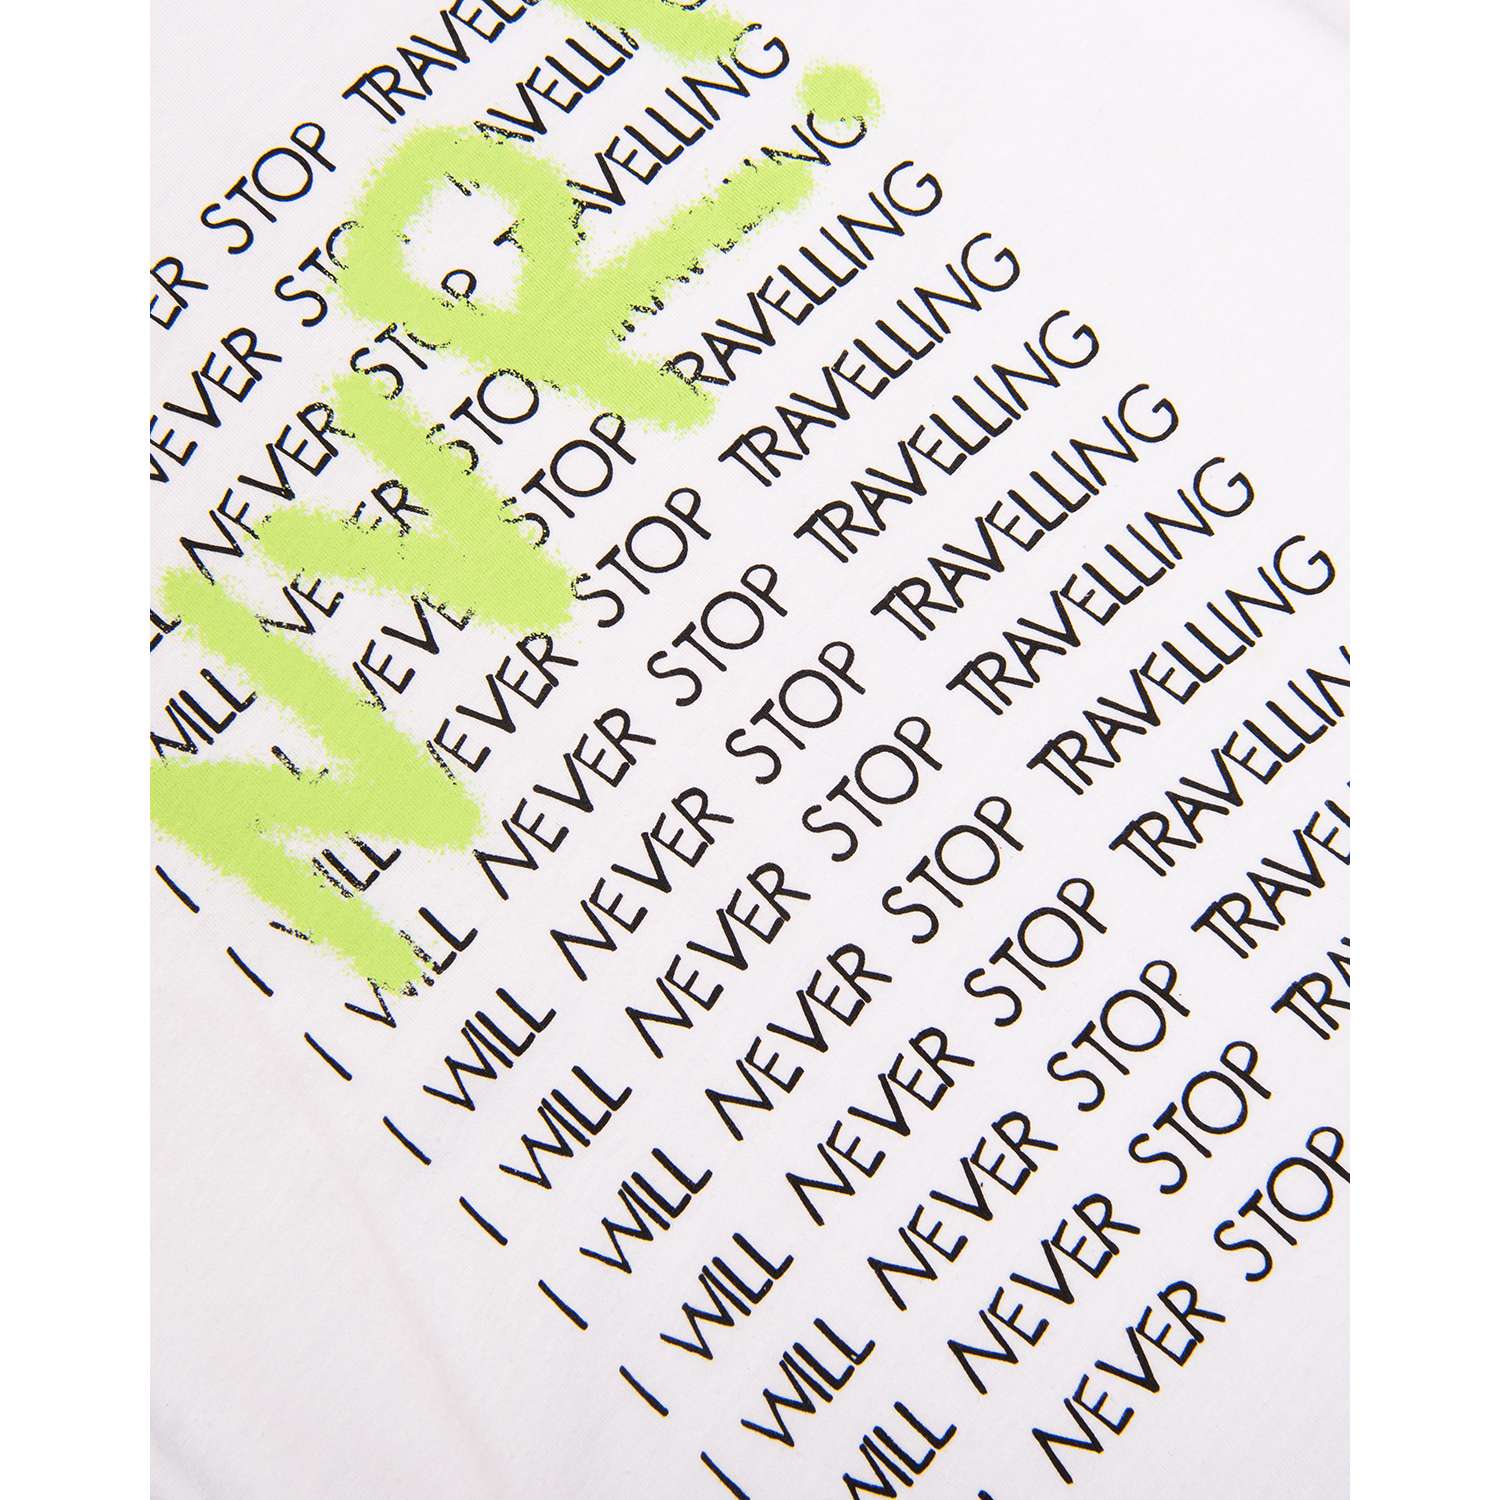 ER STOP
NEVER
NEVER STOP TRAVELLING
WILL NEVER
I NEVER STOP TRAVELLING
I WILL NEVER STOP TRAVELLING
I WILL NEVER STOP TRAVELLING
I WILL NEVER STOP TRAVELLING
I WILL NEVER STOP TRAVELLING
I WILL NEVER STOP TRAVELLING
I WILL NEVER STOP TRAVELLIN
I WILL NEVER STOP TRAVEL
WILL NEVER STOP TRA
NEVER STOP
NVR.